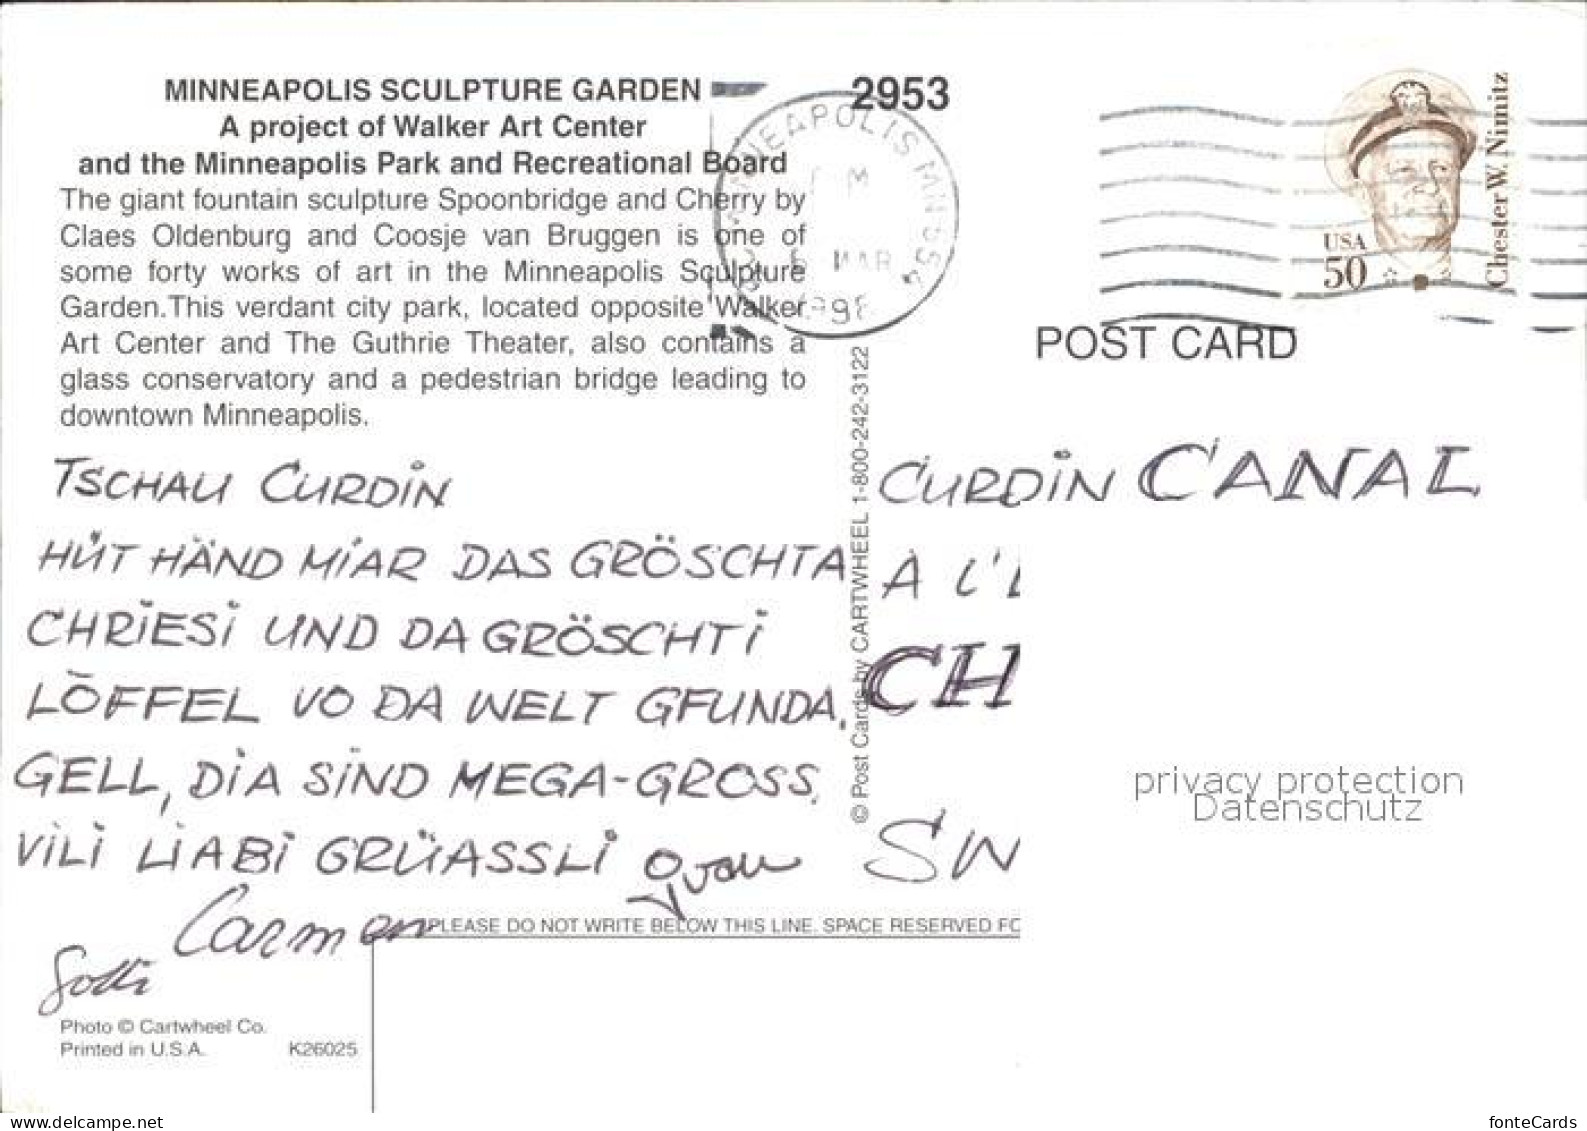 MINNEAPOLIS SCULPTURE GARDEN
A project of Walker Art Center
and the Minneapolis Park and Recreational Board
The giant fountain sculpture Spoonbridge and Cherry by
Claes Oldenburg and Coosje van Bruggen is one of
some forty works of art in the Minneapolis Sculpture
Garden.This verdant city park, located opposite Walker
Art Center and The Guthrie Theater, also contains a
glass conservatory and a pedestrian bridge leading to
downtown Minneapolis.
TSCHAU CURDIN
HÜT HÄND MIAR DAS GRÖSCHTA
CHRIESI UND DA GRÖSCHTI
LÖFFEL VO DA WELT GFUNDA.
GELL, DIA SIND MEGA-GROSS.
VILI LIABI GRÜASSLI
Carmen
Gotti
Photo © Cartwheel Co.
Printed in U.S.A. K26025
2953
MINNEAPOLIS MN 554
MAR
© Post Cards by CARTWHEEL 1-800-242-3122
PLEASE DO NOT WRITE BELOW THIS LINE. SPACE RESERVED FO
USA
50
Chester W. Nimitz
POST CARD
CURDIN CANAL
A L'
CH
SW
privacy protection
Datenschutz
www.delcampe.net
fonteCards